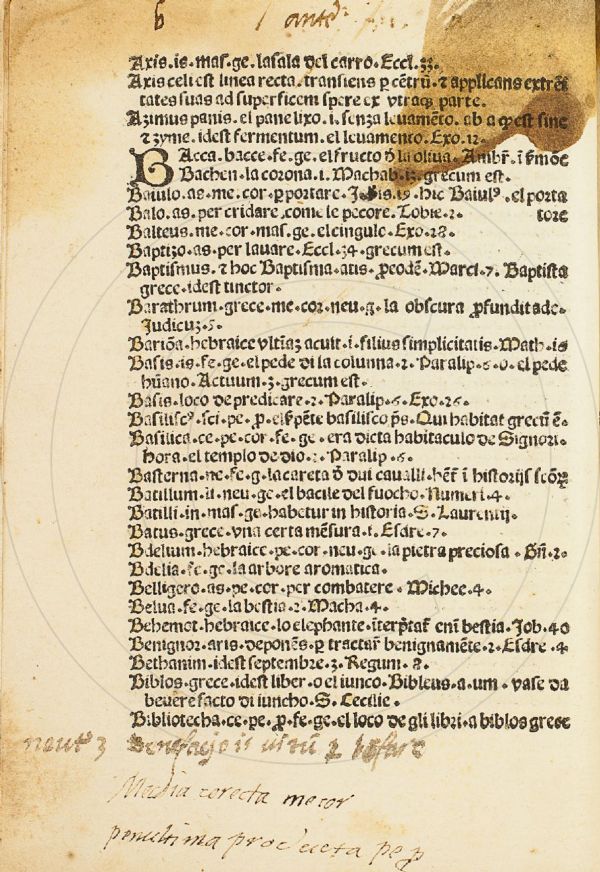 b
Axis.is.mas.ge.lasala del carro.Eccl.33.
Axis celi est linea recta.transiens ꝑ cẽtrũ.⁊ applicans extrẽi
tates suas ad superficem spere ex vtraqꝫ parte.
Azimus panis.el pane lixo.i.senza leuamẽto. ab a qꝫ est sine
⁊ zyme.idest fermentum.el leuamento.Exo.12.
BAcca.bacce.fe.ge.el fructo ð la oliua.Ambr̃.ĩ
Bachen.la corona.1.Machab.13.grecum est.
Baiulo.as.me.cor.ꝑ portare.hic Baiulꝰ.el porta
Balo.as.per cridare.come le pecore.Tobie.2. tore
Balteus.me.cor.mas.ge.el cingulo.Exo.28.
Baptizo.as.per lauare.Eccl.34.grecum est.
Baptismus.⁊ hoc Baptisma.atis.ꝓ eodẽ.Marci.7.Baptista
grece.idest tinctor.
Barathrum.grece.me.cor.neu.g.la obscura ꝓfundit ade.
Judicuꝫ.5.
Bariõa.hebraice vltĩaꝫ acuit.i.filius simplicitatis.Math.16
Basis.is.fe.ge.el pede di la colunna.2.Paralip.6.o.el pede
hũano.Actuum.3.grecum est.
Basis.loco de predicare.2.Paralip.6.Exo.26.
Basiliscꝰ.sci.pe.ꝓ.el ẜpẽte basilisco p̃s.Qui habitat grecũ ẽ.
Basilica.ce.pe.cor.fe.ge.era dicta habitaculo de Signori.
hora.el templo de dio.2.Paralip.6.
Basterna.ne.fe.g.la careta ð dui caualli.hẽt̃ ĩ historijs
Batillum.li.neu.ge.el bacile del fuocho.Numeri.4.
Batilli.in.mas.ge.habetur in historia.S.Laurentij.
Batus.grece.vna certa mẽsura.1.Esdre.7.
Bdelium.hebraice.pe.cor.neu.ge.la pietra preciosa.Gñ.2.
Bdelia.fe.ge.la arbore aromatica.
Belligero.as.pe.cor.per combatere.Michee.4.
Belua.fe.ge.la bestia.2.Macha.4.
Behemot.hebraice.lo elephante.ĩterp̃tat̃ enĩ bestia.Job.40
Benignor.aris.deponẽs.ꝑ tractar̃ benignamẽte.2.Esdre.4
Bethanim.idest septembre.3.Regum.8.
Biblos.grece.idest liber.o el iunco.Bibleus.a.um.vase da
beuere facto di iuncho.S.Cecilie.
Bibliotheca.ce.pe.ꝓ.fe.ge.el loco de gli libri.a biblos grece
Media corecta me cor
penultima producta pe ꝓ